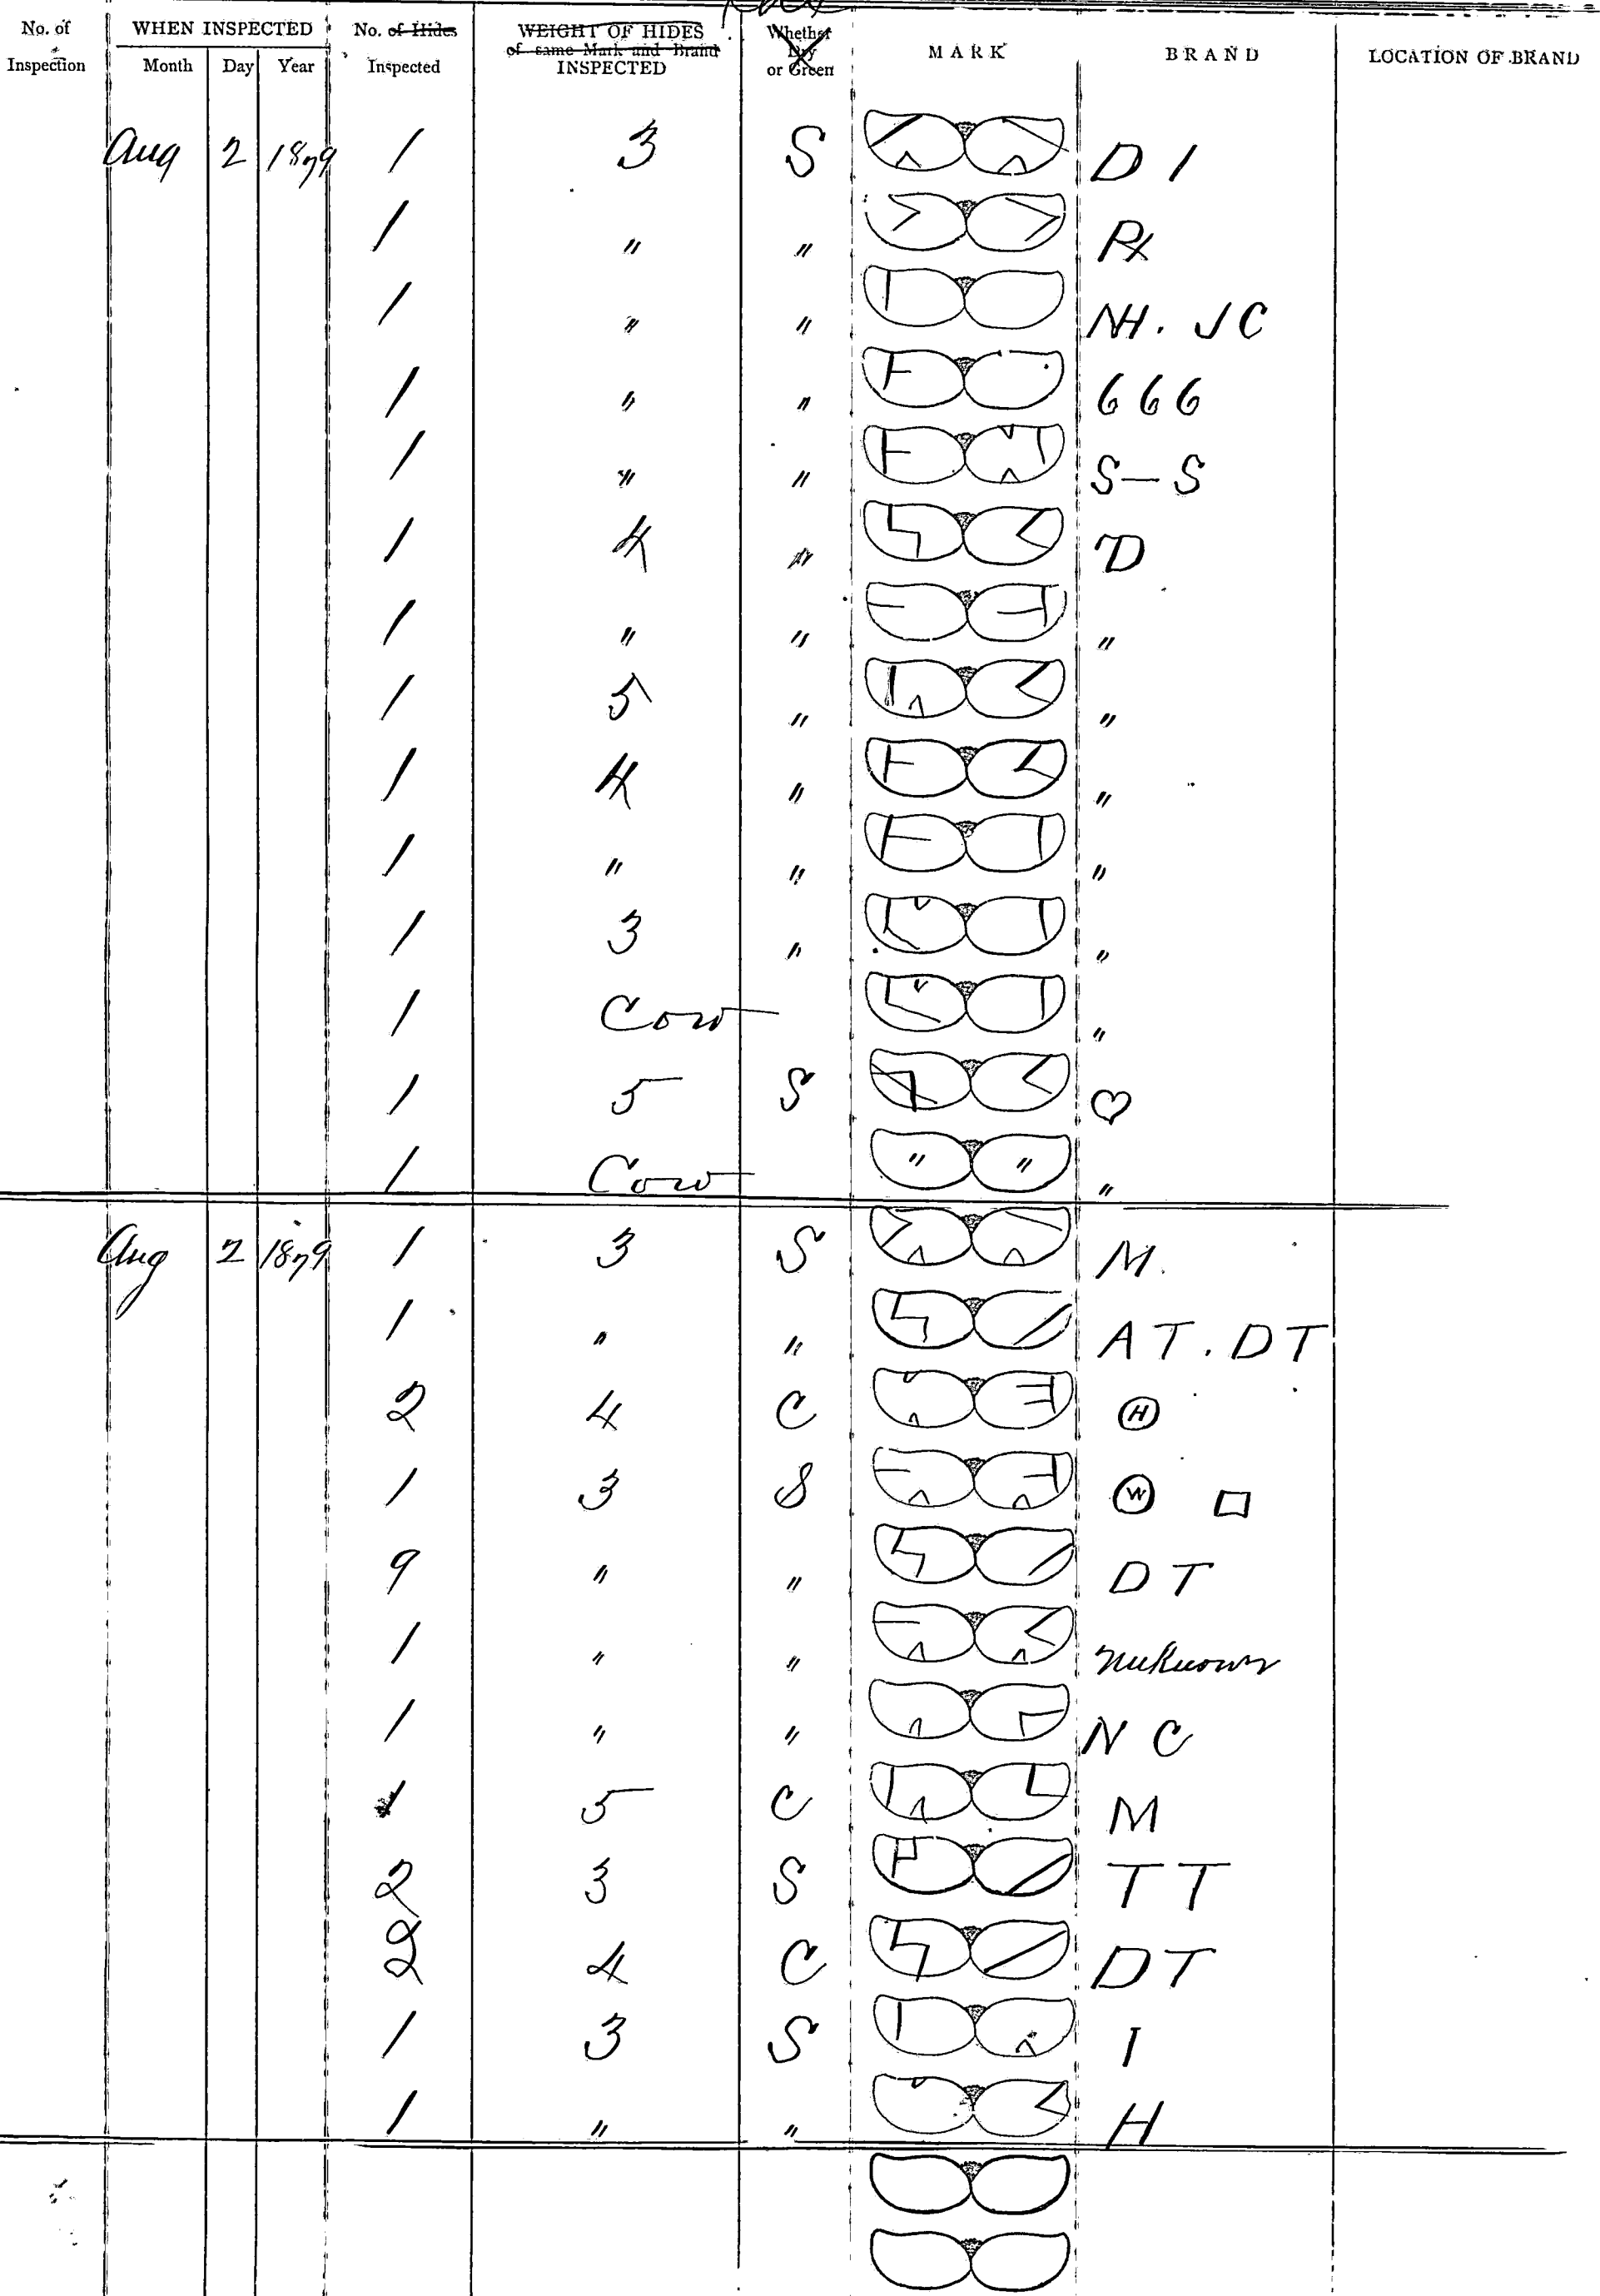 No. of Inspection WHEN INSPECTED Month Day Year No. of Hides Inspected WEIGHT OF HIDES of same Mark and Brand INSPECTED Whether Dry or Green MARK BRAND LOCATION OF BRAND
Aug 2 1879 1 3 S D I
1 " " PX
1 " " NH. JC
1 " " 666
1 " " S—S
1 4 " D
1 " " "
1 5 " "
1 4 " "
1 " " "
1 3 " "
1 Cow "
1 5 S ♡
1 Cow " " "
Aug 2 1879 1 3 S M.
1 " " AT. DT
2 4 C Ⓗ
1 3 S Ⓦ □
9 " " DT
1 " " unknown
1 " " N C
1 5 C M
2 3 S TT
2 4 C DT
1 3 S I
1 " " H